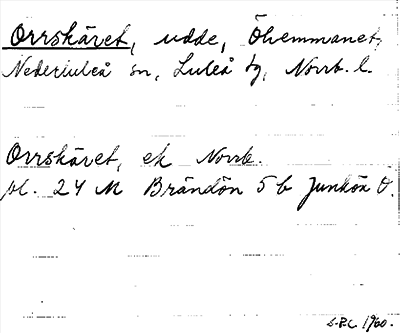 Orrskäret, udde, Öhemmanet,
Nederluleå sn, Luleå tg, Norrb. l.
Orrskäret, ek Norrb.
pl. 24 M Brändön 5 b Junkön O.
S.P.C. 1960.